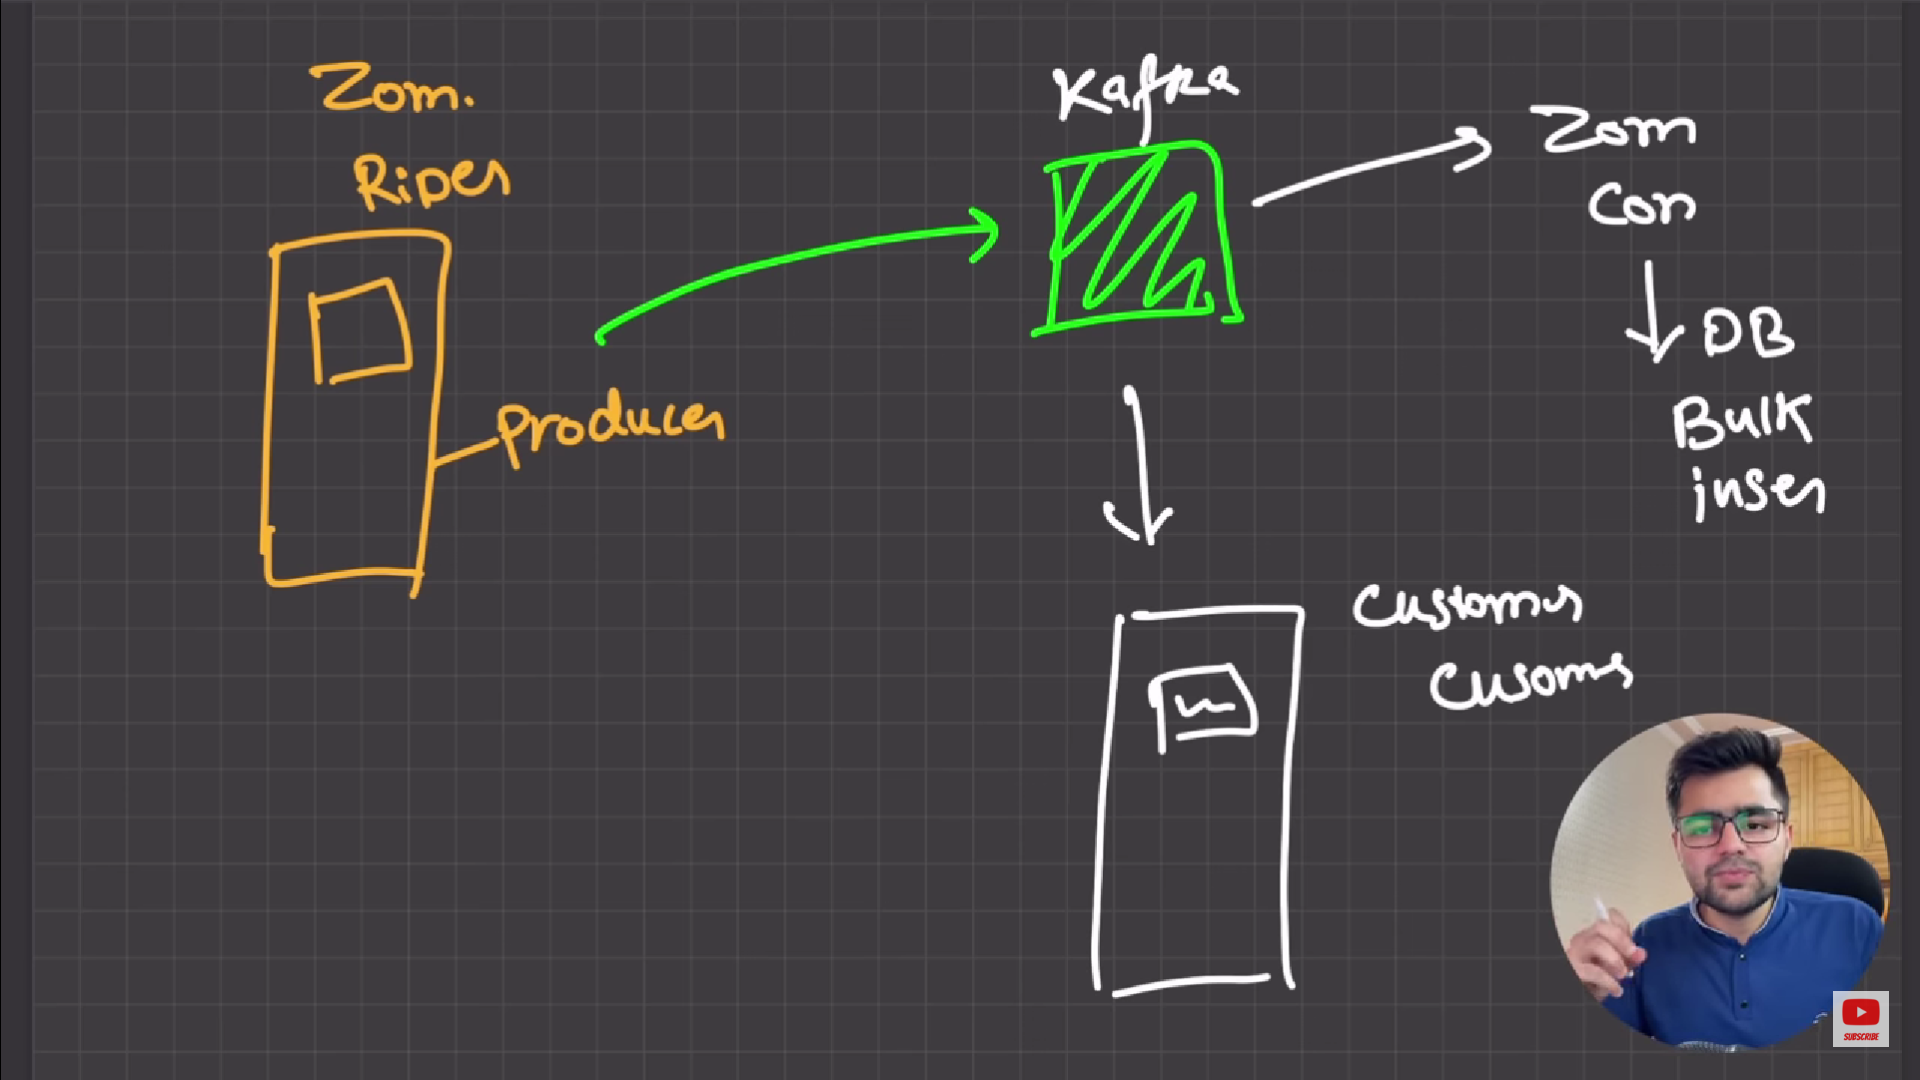 Zom.
Rider
Producer
Kafka
Zom
Con
DB
Bulk
inser
Customer
Cusomer
SUBSCRIBE